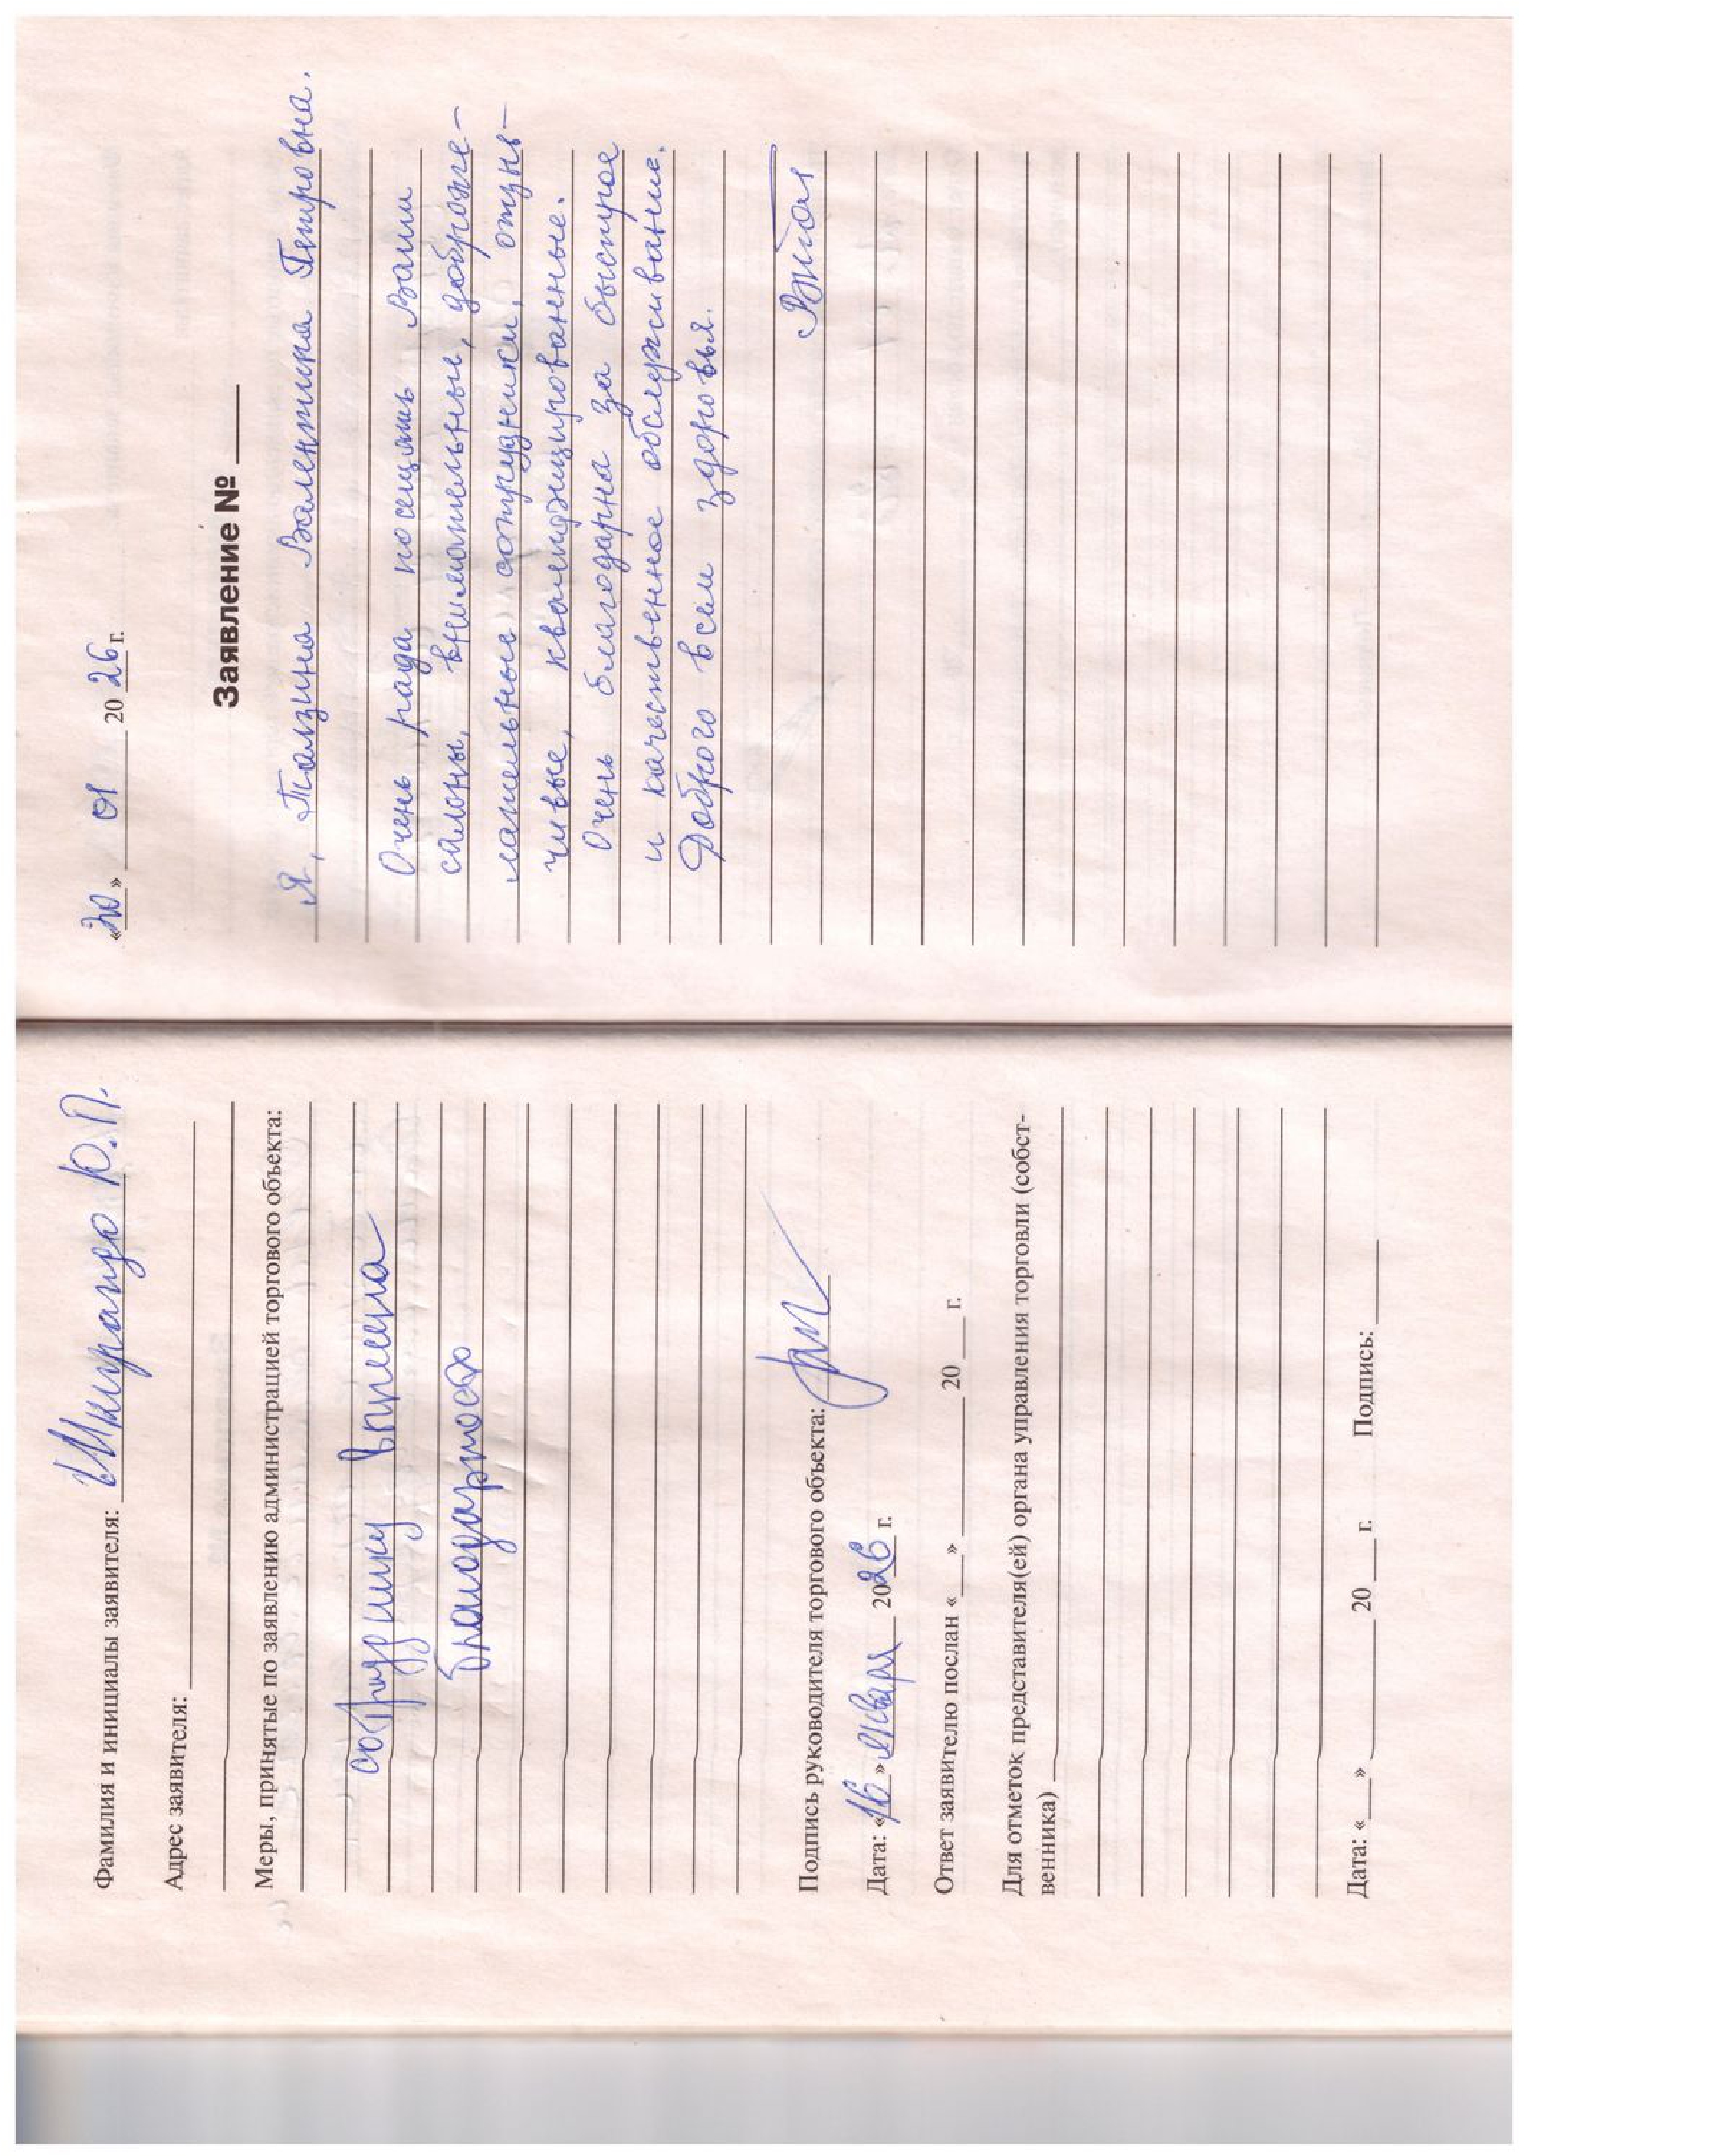 Фамилия и инициалы заявителя: Ю.П.
Адрес заявителя:
Меры, принятые по заявлению администрацией торгового объекта:
сотруднику вынесена
благодарность
Подпись руководителя торгового объекта:
Дата: «16» января 2026 г.
Ответ заявителю послан «___» ______ 20 ___ г.
Для отметок представителя(ей) органа управления торговли (собст-
венника)
Дата: «___» ______ 20 ___ г. Подпись: ______
«20» 01 2026 г.
Заявление № ____
Я, Валентина Петровна.
Очень рада посещать Ваши
салоны, внимательные, доброже-
лательные сотрудники, отзыв-
чивые, квалифицированные.
Очень благодарна за быстрое
и качественное обслуживание.
Доброго всем здоровья.